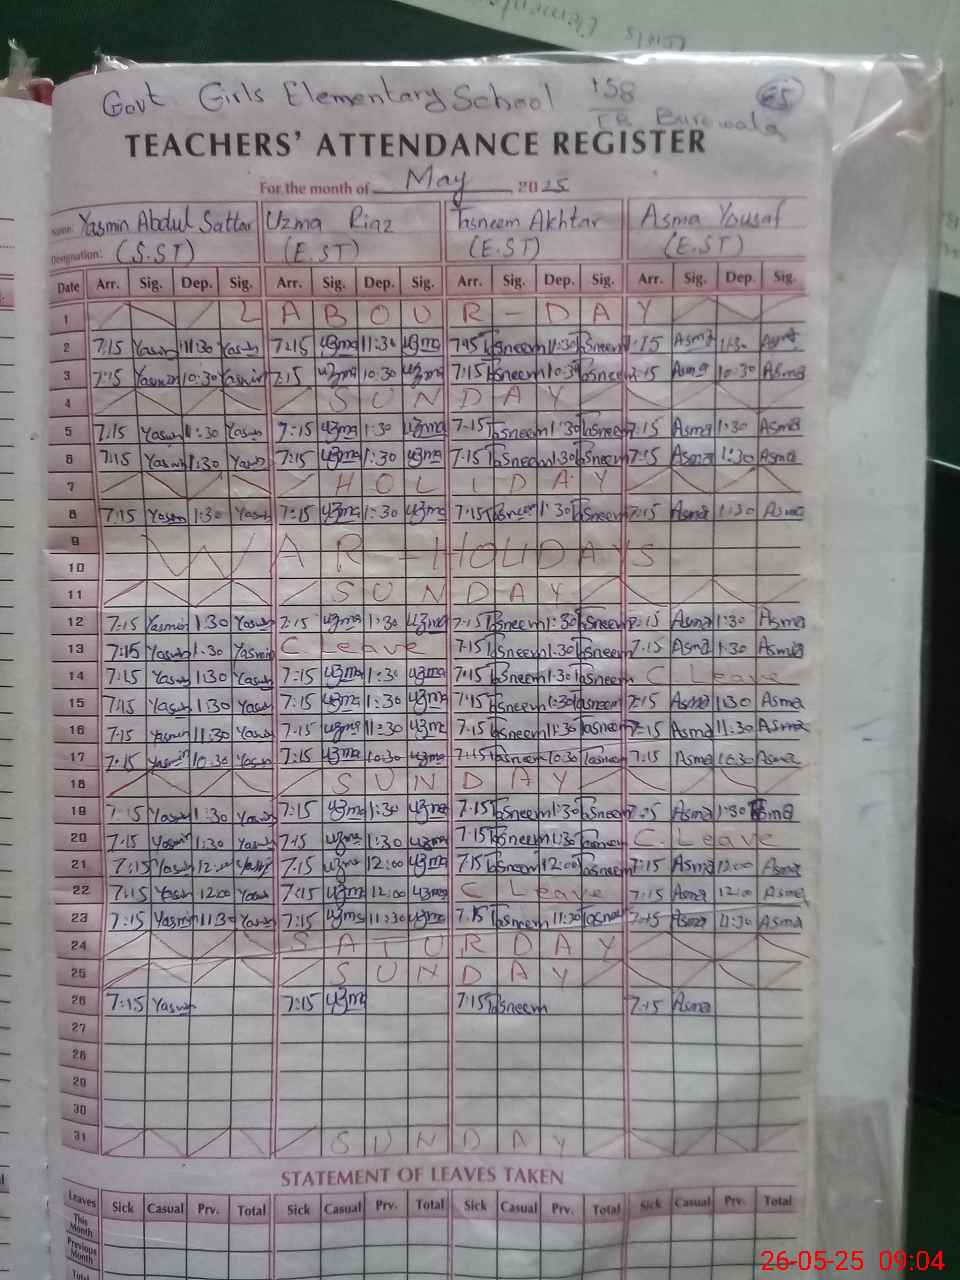 Girls Elementary
Govt Girls Elementary School 158
EB Burewala
TEACHERS' ATTENDANCE REGISTER
For the month of May 2025
Name: Yasmin Abdul Sattar Uzma Riaz Tasneem Akhtar Asma Yousaf
Designation: (S.ST) (E.ST) (E.ST) (E.ST)
Date Arr. Sig. Dep. Sig. Arr. Sig. Dep. Sig. Arr. Sig. Dep. Sig. Arr. Sig. Dep. Sig.
1 LABOUR - DAY
2 7:15 Yasmin 11:30 Yasmin 7:15 uzma 11:30 uzma 7:15 Tasneem 11:30 Tasneem 7:15 Asma 11:30 Asma
3 7:15 Yasmin 10:30 Yasmin 7:15 uzma 10:30 uzma 7:15 Tasneem 10:30 Tasneem 7:15 Asma 10:30 Asma
4 SUNDAY
5 7:15 Yasmin 1:30 Yasmin 7:15 uzma 1:30 uzma 7:15 Tasneem 1:30 Tasneem 7:15 Asma 1:30 Asma
6 7:15 Yasmin 1:30 Yasmin 7:15 uzma 1:30 uzma 7:15 Tasneem 1:30 Tasneem 7:15 Asma 1:30 Asma
7 HOLIDAY
8 7:15 Yasmin 1:30 Yasmin 7:15 uzma 1:30 uzma 7:15 Tasneem 1:30 Tasneem 7:15 Asma 1:30 Asma
9 WAR - HOLIDAYS
10
11 SUNDAY
12 7:15 Yasmin 1:30 Yasmin 7:15 uzma 1:30 uzma 7:15 Tasneem 1:30 Tasneem 7:15 Asma 1:30 Asma
13 7:15 Yasmin 1:30 Yasmin C Leave 7:15 Tasneem 1:30 Tasneem 7:15 Asma 1:30 Asma
14 7:15 Yasmin 1:30 Yasmin 7:15 uzma 1:30 uzma 7:15 Tasneem 1:30 Tasneem C Leave
15 7:15 Yasmin 1:30 Yasmin 7:15 uzma 1:30 uzma 7:15 Tasneem 1:30 Tasneem 7:15 Asma 1:30 Asma
16 7:15 Yasmin 11:30 Yasmin 7:15 uzma 11:30 uzma 7:15 Tasneem 11:30 Tasneem 7:15 Asma 11:30 Asma
17 7:15 Yasmin 10:30 Yasmin 7:15 uzma 10:30 uzma 7:15 Tasneem 10:30 Tasneem 7:15 Asma 10:30 Asma
18 SUNDAY
19 7:15 Yasmin 1:30 Yasmin 7:15 uzma 1:30 uzma 7:15 Tasneem 1:30 Tasneem 7:15 Asma 1:30 Asma
20 7:15 Yasmin 1:30 Yasmin 7:15 uzma 1:30 uzma 7:15 Tasneem 1:30 Tasneem C. Leave
21 7:15 Yasmin 12:00 Yasmin 7:15 uzma 12:00 uzma 7:15 Tasneem 12:00 Tasneem 7:15 Asma 12:00 Asma
22 7:15 Yasmin 12:00 Yasmin 7:15 uzma 12:00 uzma C Leave 7:15 Asma 12:00 Asma
23 7:15 Yasmin 11:30 Yasmin 7:15 uzma 11:30 uzma 7:15 Tasneem 11:30 Tasneem 7:15 Asma 11:30 Asma
24 SATURDAY
25 SUNDAY
26 7:15 Yasmin 7:15 uzma 7:15 Tasneem 7:15 Asma
27
28
29
30
31 SUNDAY
STATEMENT OF LEAVES TAKEN
Leaves Sick Casual Prv. Total Sick Casual Prv. Total Sick Casual Prv. Total Sick Casual Prv. Total
This Month
Previous Month
Total
26-05-25 09:04